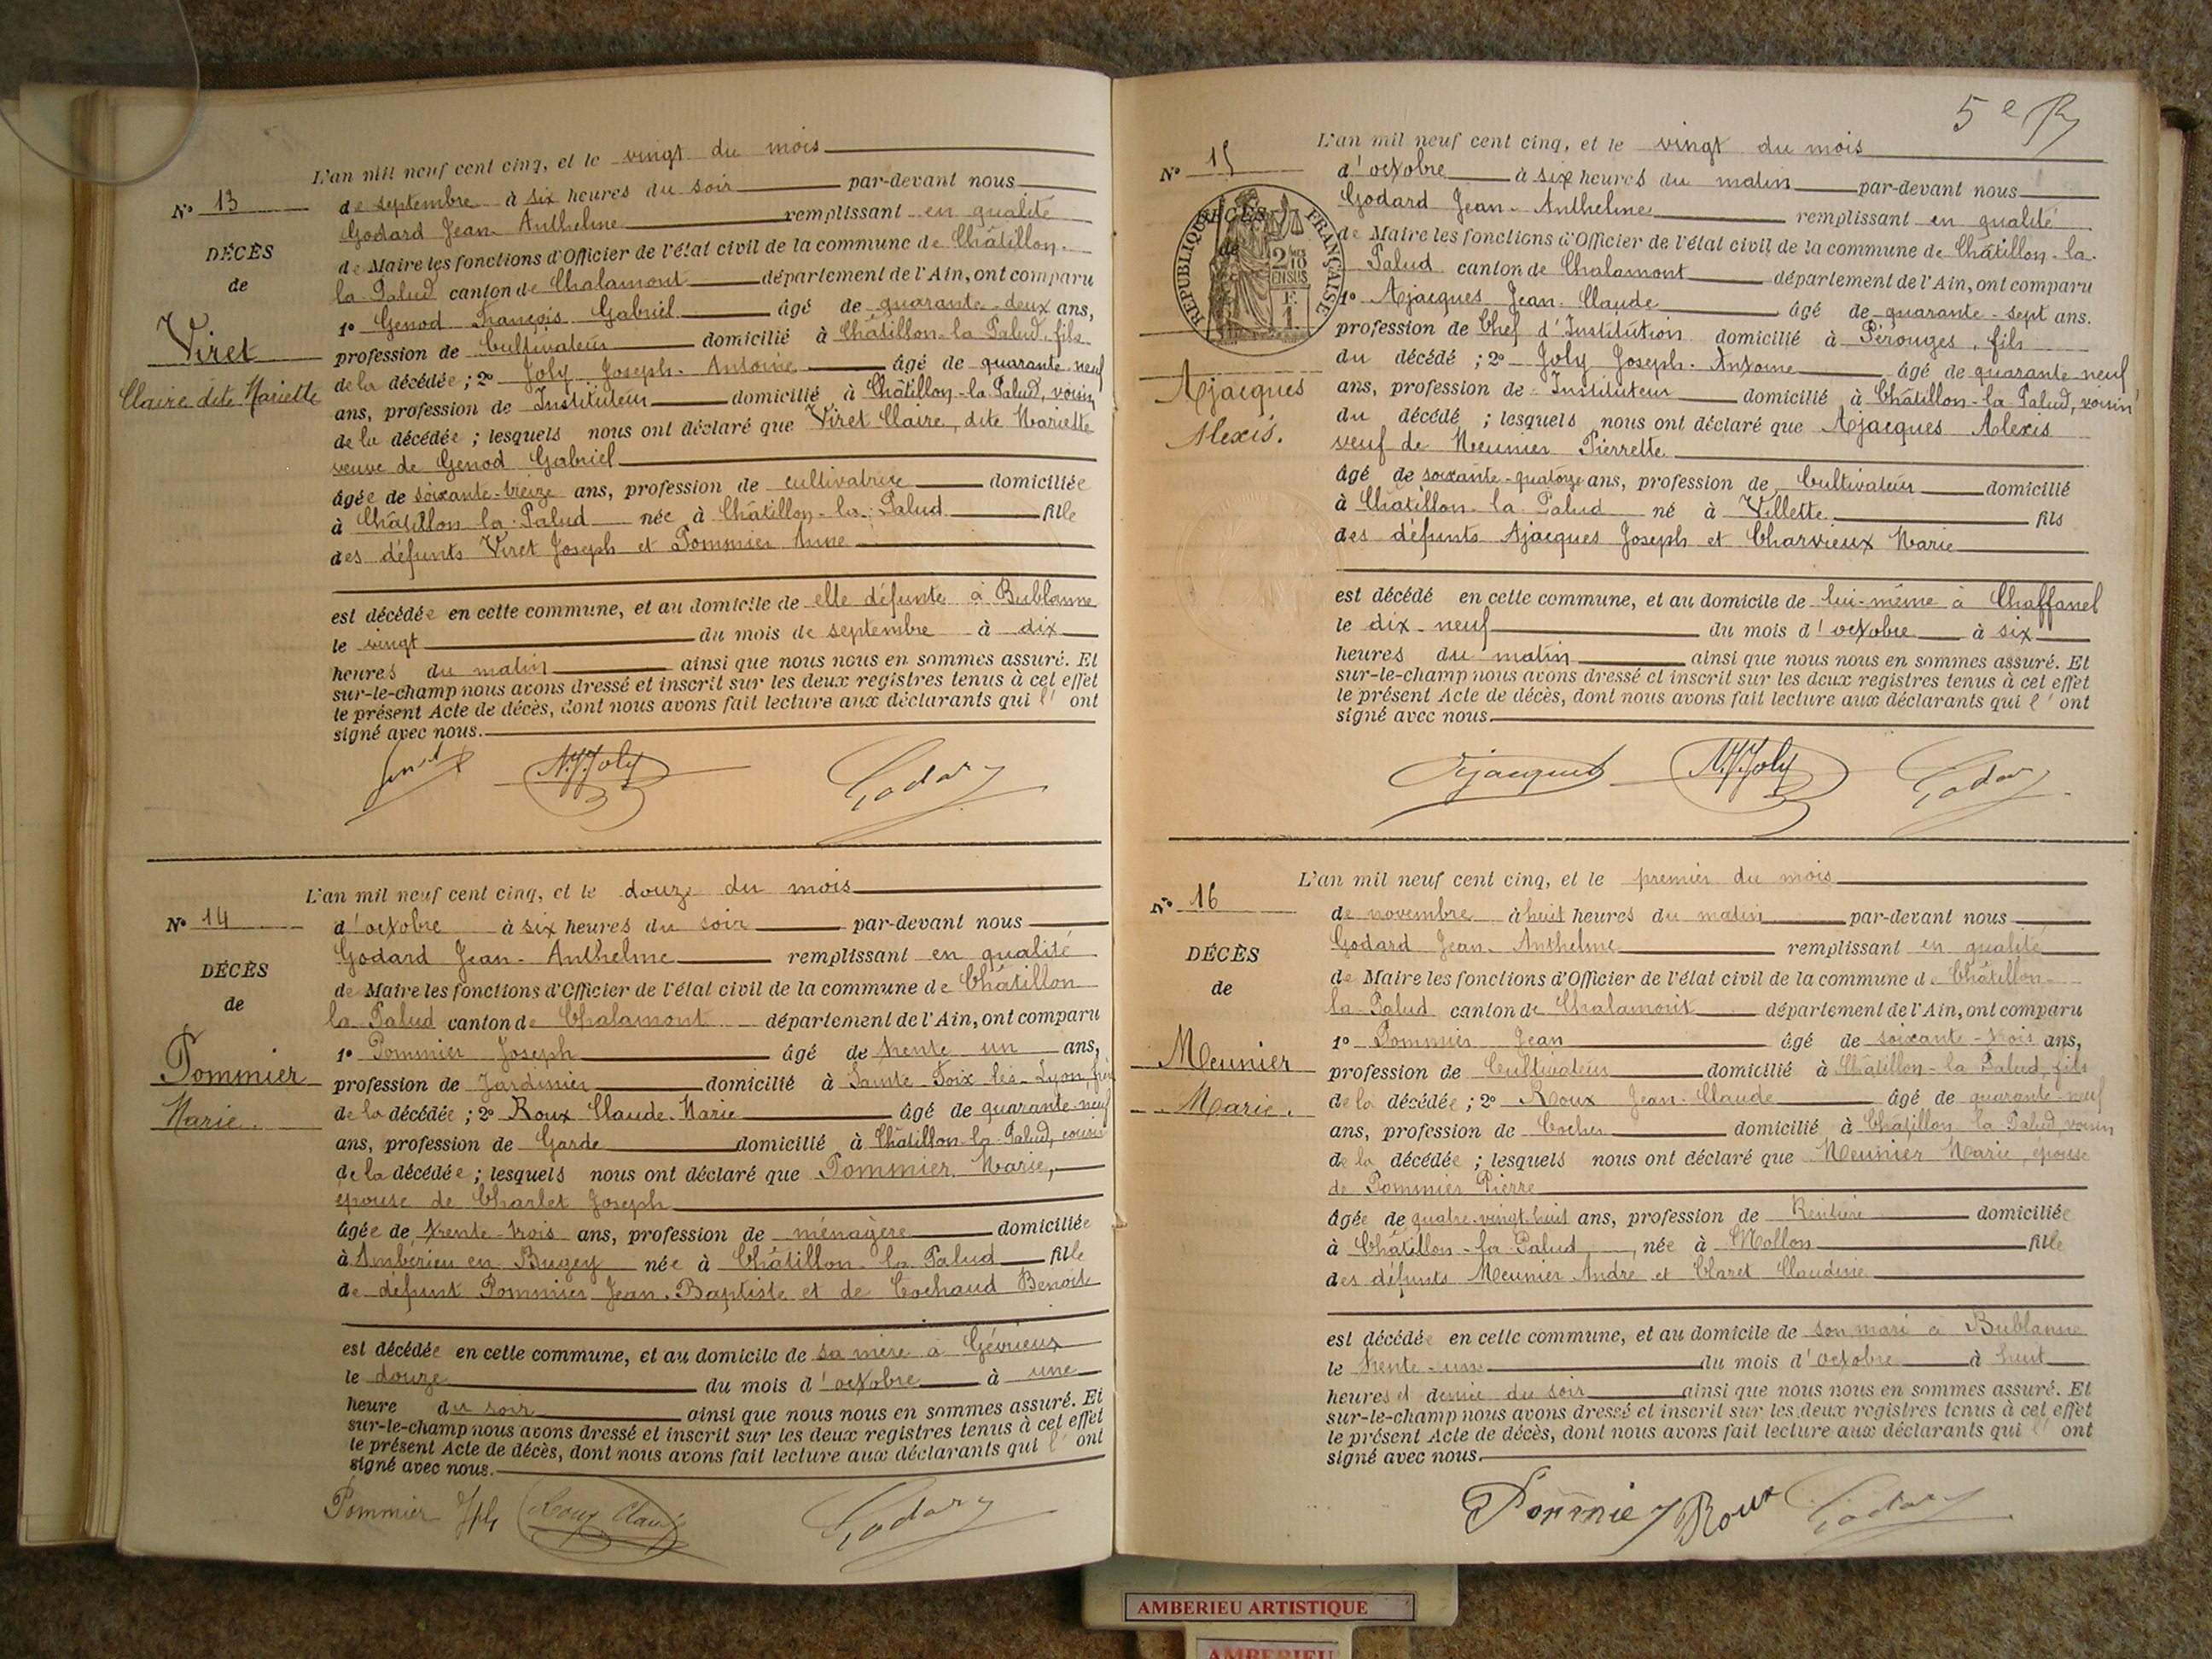 L'an mil neuf cent cinq, et le vingt du mois
N° 13
de septembre à six heures du soir par-devant nous
Godard Jean-Anthelme remplissant en qualité
DÉCÈS
de Maire les fonctions d'Officier de l'état civil de la commune de Châtillon-
de
la-Palud canton de Chalamont département de l'Ain, ont comparu
1° Genod François Gabriel âgé de quarante-deux ans,
Viret
profession de Cultivateur domicilié à Châtillon-la-Palud, fils
Claire dite Mariette
de la décédée ; 2° Joly Joseph-Antoine âgé de quarante neuf
ans, profession de Instituteur domicilié à Châtillon-la-Palud, voisin
de la décédée ; lesquels nous ont déclaré que Viret Claire, dite Mariette
veuve de Genod Gabriel
âgée de soixante-treize ans, profession de cultivatrice domiciliée
à Châtillon la-Palud née à Châtillon-la-Palud fille
des défunts Viret Joseph et Pommier Anne
est décédée en cette commune, et au domicile de elle défunte à Bublanne
le vingt du mois de septembre à dix
heures du matin ainsi que nous nous en sommes assuré. Et
sur-le-champ nous avons dressé et inscrit sur les deux registres tenus à cet effet
le présent Acte de décès, dont nous avons fait lecture aux déclarants qui l' ont
signé avec nous.
Joly Godard
L'an mil neuf cent cinq, et le douze du mois
N° 14
d'octobre à six heures du soir par-devant nous
Godard Jean-Anthelme remplissant en qualité
DÉCÈS
de Maire les fonctions d'Officier de l'état civil de la commune de Châtillon
de
la Palud canton de Chalamont département de l'Ain, ont comparu
1° Pommier Joseph âgé de trente un ans,
Pommier
profession de Jardinier domicilié à Sainte-Foix-lès-Lyon, frère
Marie.
de la décédée ; 2° Roux Claude-Marie âgé de quarante-neuf
ans, profession de Garde domicilié à Châtillon-la-Palud, cousin
de la décédée ; lesquels nous ont déclaré que Pommier Marie,
épouse de Charlet Joseph
âgée de trente-trois ans, profession de ménagère domiciliée
à Ambérieu en Bugey née à Châtillon-la Palud fille
de défunt Pommier Jean-Baptiste et de Cochaud Benoite
est décédée en cette commune, et au domicile de sa mère à Gévrieux
le douze du mois d'octobre à une
heure du soir ainsi que nous nous en sommes assuré. Et
sur-le-champ nous avons dressé et inscrit sur les deux registres tenus à cet effet
le présent Acte de décès, dont nous avons fait lecture aux déclarants qui l' ont
signé avec nous.
Pommier Jph Roux Claude Godard
5e
L'an mil neuf cent cinq, et le vingt du mois
N° 15
d'octobre à six heures du matin par-devant nous
Godard Jean-Anthelme remplissant en qualité
DÉCÈS
de
RÉPUBLIQUE FRANÇAISE
2/10 EN SUS
F. 1
de Maire les fonctions d'Officier de l'état civil de la commune de Châtillon-la-
Palud canton de Chalamont département de l'Ain, ont comparu
1° Ajacques Jean-Claude âgé de quarante-sept ans.
profession de Chef d'Institution domicilié à Pérouges, fils
Ajacques
Alexis.
du décédé ; 2° Joly Joseph-Antoine âgé de quarante-neuf
ans, profession de Instituteur domicilié à Châtillon-la Palud, voisin
du décédé ; lesquels nous ont déclaré que Ajacques Alexis
veuf de Meunier Pierrette
âgé de soixante-quatorze ans, profession de Cultivateur domicilié
à Châtillon-la Palud né à Villette fils
des défunts Ajacques Joseph et Charvieux Marie
est décédé en cette commune, et au domicile de lui-même à Chaffanel
le dix-neuf du mois d'octobre à six
heures du matin ainsi que nous nous en sommes assuré. Et
sur-le-champ nous avons dressé et inscrit sur les deux registres tenus à cet effet
le présent Acte de décès, dont nous avons fait lecture aux déclarants qui l' ont
signé avec nous.
Ajacques Joly Godard
L'an mil neuf cent cinq, et le premier du mois
N° 16
de novembre à huit heures du matin par-devant nous
Godard Jean-Anthelme remplissant en qualité
DÉCÈS
de Maire les fonctions d'Officier de l'état civil de la commune de Châtillon-
de
la-Palud canton de Chalamont département de l'Ain, ont comparu
1° Pommier Jean âgé de soixante-trois ans,
Meunier
profession de Cultivateur domicilié à Châtillon-la Palud, fils
Marie.
de la décédée ; 2° Roux Jean-Claude âgé de quarante-neuf
ans, profession de Cocher domicilié à Châtillon la Palud, voisin
de la décédée ; lesquels nous ont déclaré que Meunier Marie, épouse
de Pommier Pierre
âgée de quatre-vingt-huit ans, profession de Rentière domiciliée
à Châtillon-la-Palud, née à Mollon fille
des défunts Meunier André et Claret Claudine
est décédée en cette commune, et au domicile de son mari à Bublanne
le trente-un du mois d'octobre à huit
heures et demie du soir ainsi que nous nous en sommes assuré. Et
sur-le-champ nous avons dressé et inscrit sur les deux registres tenus à cet effet
le présent Acte de décès, dont nous avons fait lecture aux déclarants qui l' ont
signé avec nous.
Pommier Roux Godard
AMBERIEU ARTISTIQUE
AMBERIEU